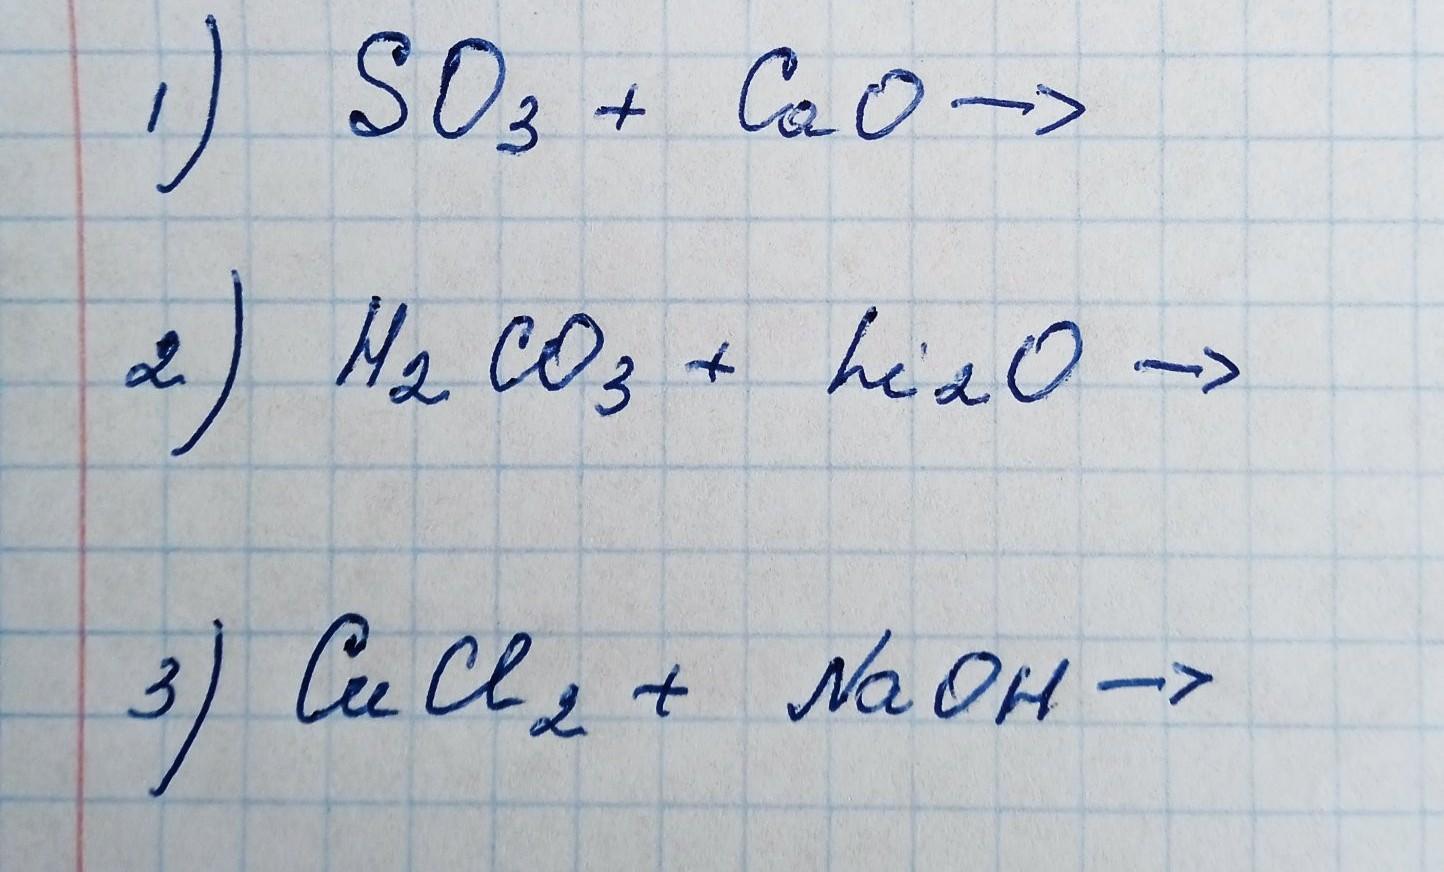 1) SO₃ + CaO →
2) H₂CO₃ + Li₂O →
3) CuCl₂ + NaOH →